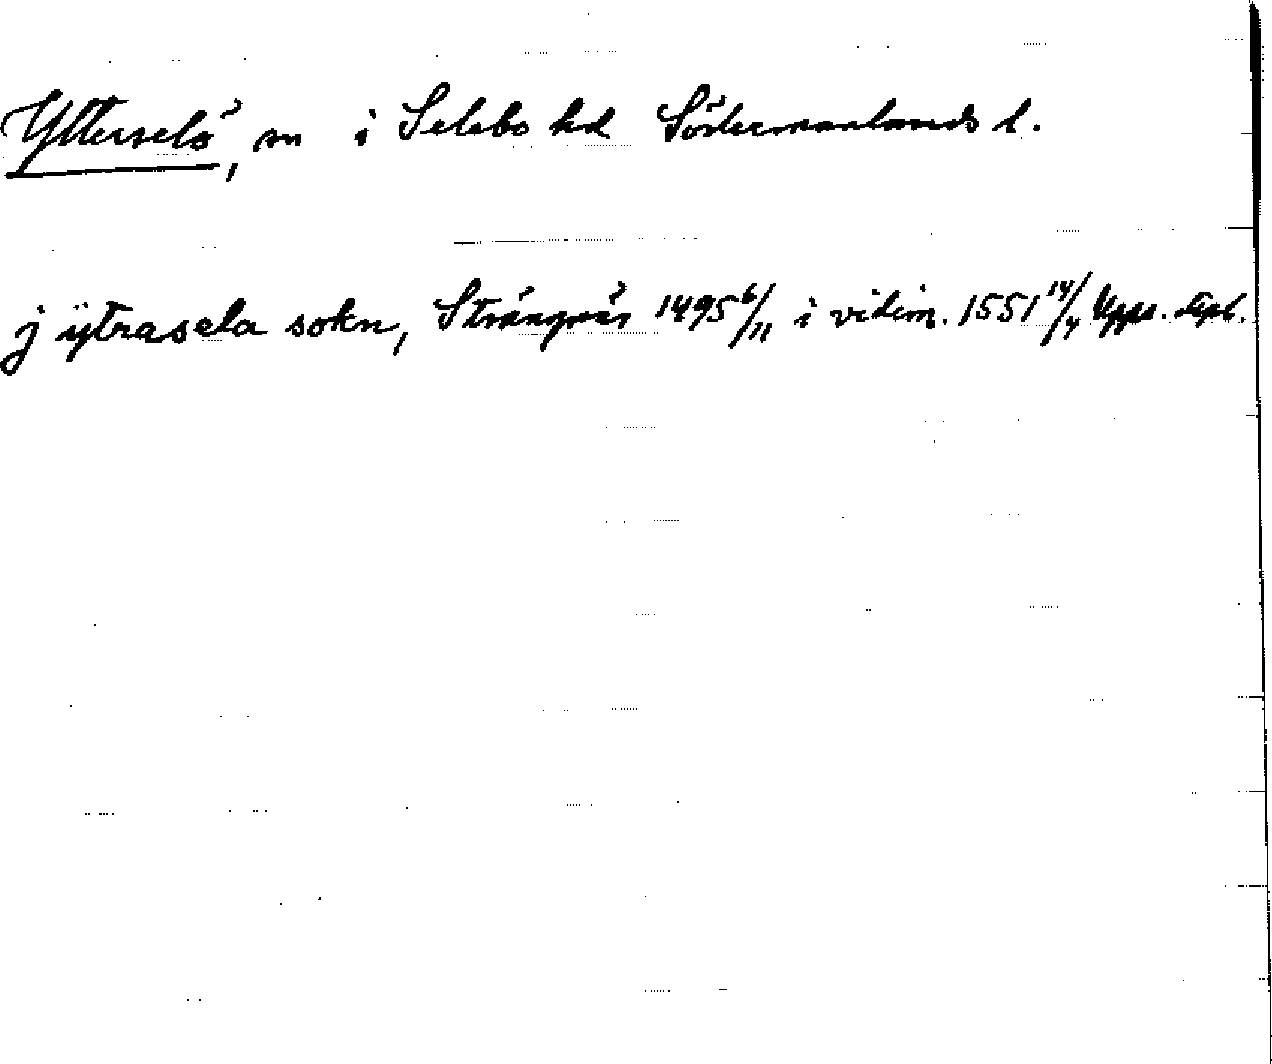 Ytterselö, sn i Selebo hd Södermanlands l.
j ÿtrasela sokn, Strängnäs 1495 6/11 i vidim. 1551 14/4 Upps. dipl.